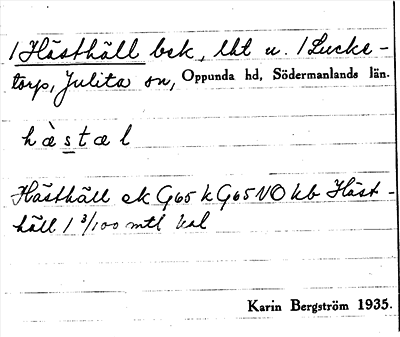 1 Hästhäll bsk, lht u. 1 Lucke-
torp, Julita sn, Oppunda hd, Södermanlands län.
hæ̀stæl
Hästhäll ek G65 k G65 NO kb Häst-
häll 1 3/100 mtl
Karin Bergström 1935.